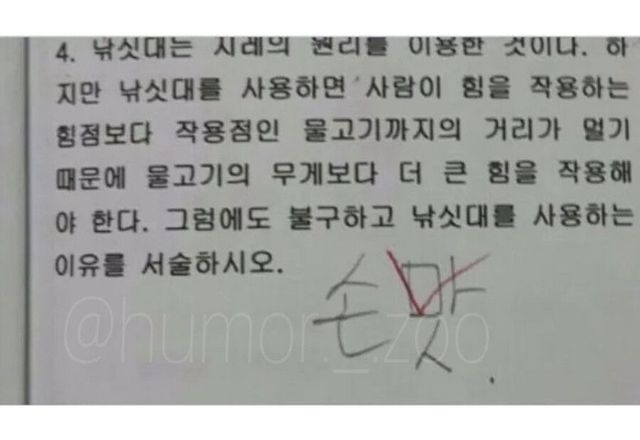 4. 낚싯대는 지레의 원리를 이용한 것이다. 하
지만 낚싯대를 사용하면 사람이 힘을 작용하는
힘점보다 작용점인 물고기까지의 거리가 멀기
때문에 물고기의 무게보다 더 큰 힘을 작용해
야 한다. 그럼에도 불구하고 낚싯대를 사용하는
이유를 서술하시오.
손맛.
@humor._.zoo